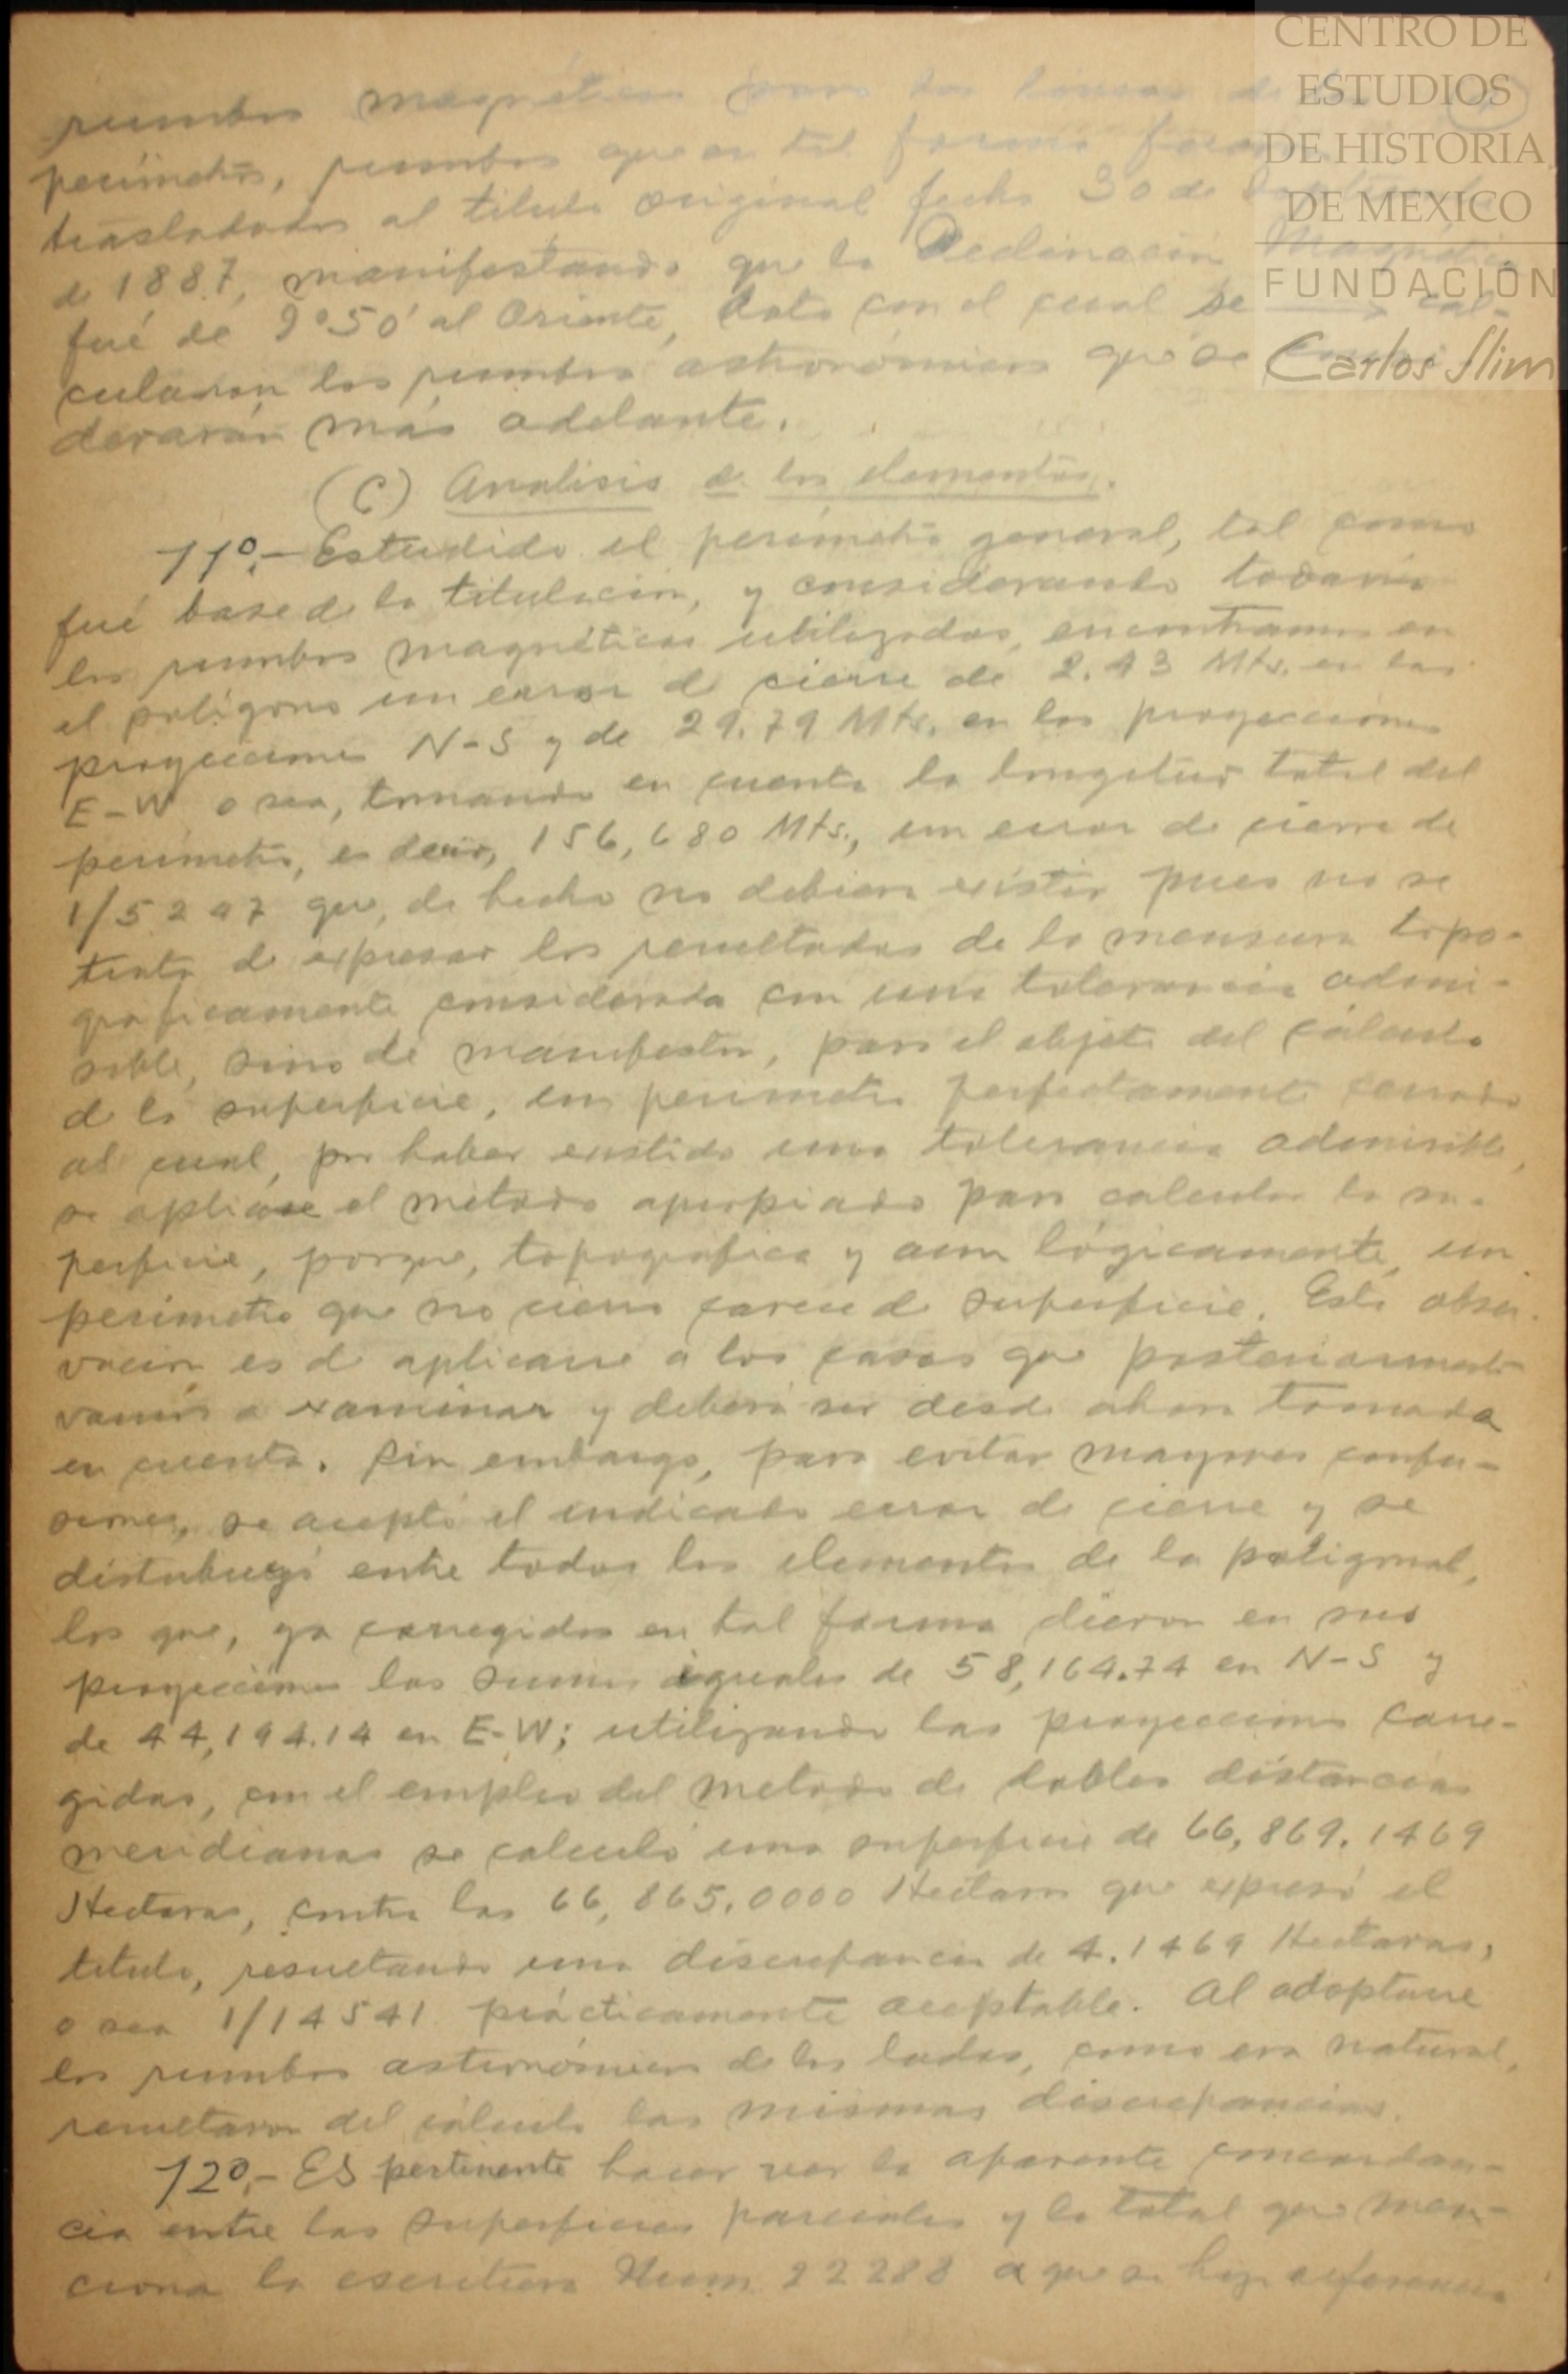 CENTRO DE
ESTUDIOS
DE HISTORIA
DE MEXICO
FUNDACIÓN
Carlos Slim
rumbos magnéticos para las líneas de
perímetro, rumbos que en tal forma fueron
trasladados al título original fecha 30 de
de 1887, manifestando que la Declinación Magnética
fué de 9°50' al Oriente, dato con el cual se cal-
cularon los rumbos astronómicos que se
derarán más adelante.
(C) Analisis de los elementos.
11º.- Estudido el perímetro general, tal como
fué base de la titulación, y considerando todavía
los rumbos magnéticos utilizados, encontramos en
el polígono un error de cierre de 2.43 Mts. en las
proyecciones N-S y de 29.79 Mts. en las proyecciones
E-W o sea, tomando en cuenta la longitud total del
perímetro, es decir, 156,680 Mts., un error de cierre de
1/5247 que, de hecho no debiera existir pues no se
trata de expresar los resultados de la mensura topo-
graficamente considerada con una tolerancia admi-
sible, sino de manifestar, para el objeto del cálculo
de la superficie, un perímetro perfectamente cerrado
al cual, por haber existido una tolerancia admisible,
se aplicase el método apropiado para calcular la su-
perficie, porque, topográfica y aun lógicamente, un
perímetro que no cierra carece de superficie. Esta obser-
vación es de aplicarse a los casos que posteriormente
vamos a examinar y deberá ser desde ahora tomada
en cuenta. Sin embargo, para evitar mayores confu-
siones, se aceptó el indicado error de cierre y se
distribuyó entre todos los elementos de la poligonal,
los que, ya corregidos en tal forma dieron en sus
proyecciones las sumas iguales de 58,164.74 en N-S y
de 44,194.14 en E-W; utilizando las proyecciones corre-
gidas, con el empleo del metodo de dobles distancias
meridianas se calculó una superficie de 66,869.1469
Hectaras, contra las 66,865.0000 Hectaras que expresó el
título, resultando una discrepancia de 4.1469 Hectaras,
o sea 1/14541 prácticamente aceptable. Al adoptarse
los rumbos astronómicos de los lados, como era natural,
resultaron del cálculo las mismas discrepancias.
12º.- ES pertinente hacer ver la aparente concordan-
cia entre las superficies parciales y la total que men-
ciona la escritura Num. 22288 a que se hizo referencia